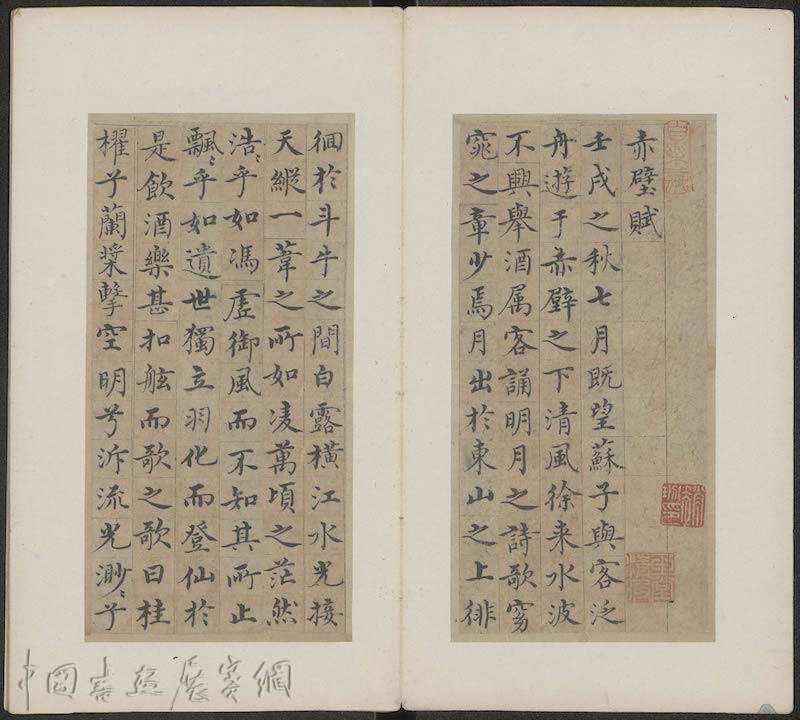 赤壁賦
壬戌之秋七月既望蘇子與客泛
舟遊于赤壁之下清風徐来水波
不興舉酒属客誦明月之詩歌窈
窕之章少焉月出於東山之上徘
徊於斗牛之間白露橫江水光接
天縱一葦之所如凌萬頃之茫然
浩〻乎如馮虛御風而不知其所止
飄〻乎如遺世獨立羽化而登仙於
是飲酒樂甚扣舷而歌之歌曰桂
櫂兮蘭槳擊空明兮泝流光渺〻兮
中國書法展賽網